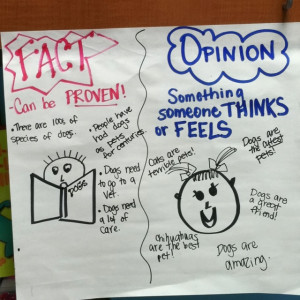 FACT
-Can be PROVEN!
• There are 100s of
species of dogs.
• People have
had dogs
as pets
for centuries.
• Dogs need
to go to a
Vet.
• Dogs need
a lot of
care.
DOGS
OPINION
Something
someone THINKS
or FEELS
Cats are
terrible pets!
Dogs are
the cutest
pets!
Dogs are
a great
friend!
chihuahuas
are the best
pet!
Dogs are
amazing.